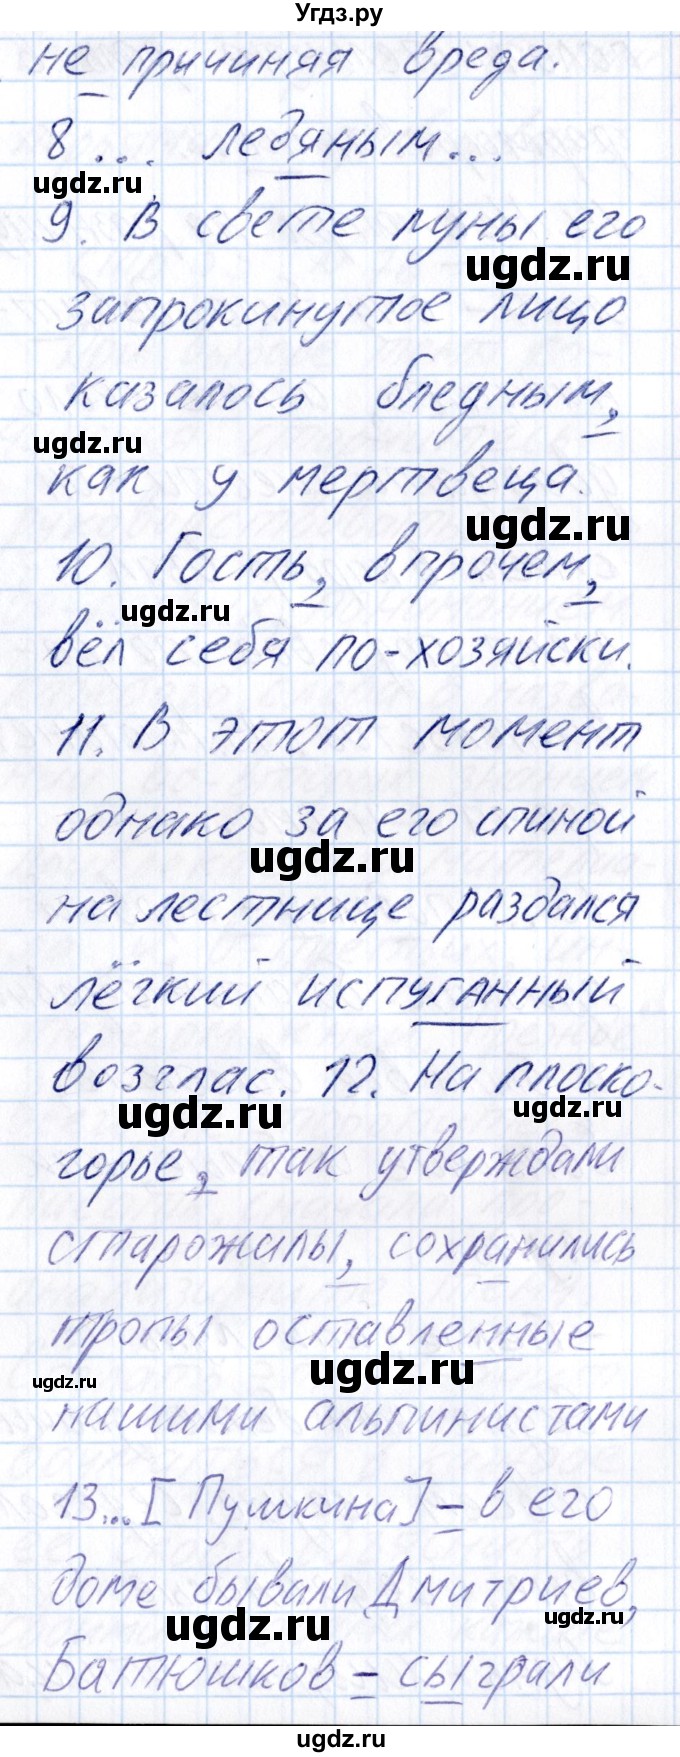 Угдз.ру
не причиняя вреда.
8... ледяным...
ugdz.ru
9. В свете луны его
ugdz.ru
запрокинутое лицо
казалось бледным,
ugdz.ru
как у мертвеца.
ugdz.ru
10. Гость, впрочем,
ugdz.ru
вёл себя по-хозяйски.
11. В этот момент
однако за его спиной
ugdz.ru
на лестнице раздался
лёгкий испуганный
возглас. 12. На плоско-
ugdz.ru ugdz.ru
горье, так утверждали
старожилы, сохранились
тропы оставленные
ugdz.ru ugdz.ru
нашими альпинистами
13...[Пушкина] – в его
доме бывали Дмитриев,
ugdz.ru ugdz.ru
Батюшков – сыграли
ugdz.ru